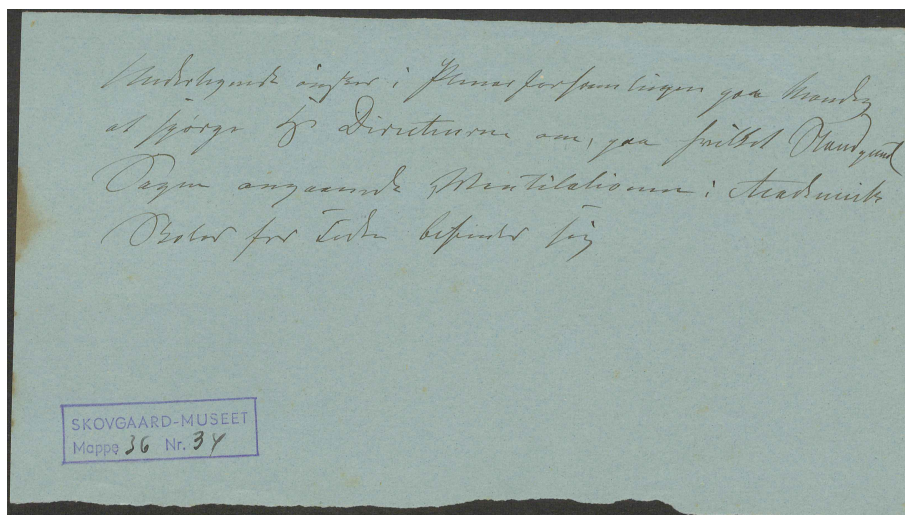 Undertegnede ønsker i Plenarforsamlingen paa Mandag
at spørge Hr Directeurne om, paa hvilket Standpunkt
Sagen angaaende Ventilationen i Academiets
Skoler for Tiden befinder sig
SKOVGAARD-MUSEET
Mappe 36 Nr. 34